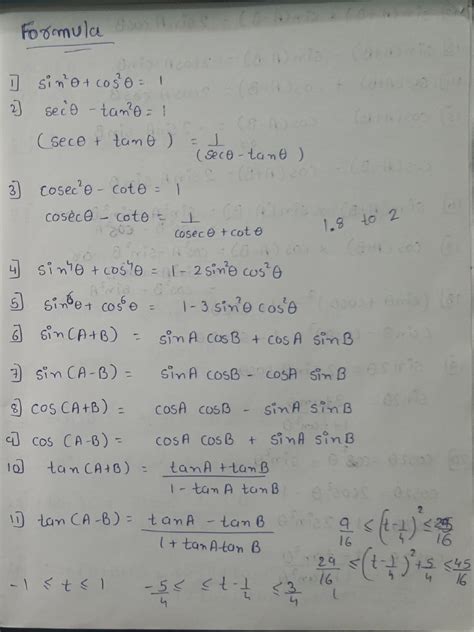 Formula
1] sin²θ + cos²θ = 1
2] sec²θ - tan²θ = 1
(secθ + tanθ) = 1/(secθ - tanθ)
3] cosec²θ - cotθ = 1
cosecθ - cotθ = 1/(cosecθ + cotθ)
1.8 to 2
4] sin⁴θ + cos⁴θ = 1 - 2sin²θ cos²θ
5] sin⁶θ + cos⁶θ = 1 - 3 sin²θ cos²θ
6] sin(A+B) = sinA cosB + cosA sinB
7] sin(A-B) = sinA cosB - cosA sinB
8] cos(A+B) = cosA cosB - sinA sinB
9] cos(A-B) = cosA cosB + sinA sinB
10] tan(A+B) = (tanA + tanB)/(1 - tanA tanB)
11] tan(A-B) = (tanA - tanB)/(1 + tanA tanB)
9/16 ≤ (t - 1/4)² ≤ 25/16
29/16 ≤ (t - 1/4)² + 5/4 ≤ 45/16
-1 ≤ t ≤ 1
-5/4 ≤ ≤ t - 1/4 ≤ 3/4